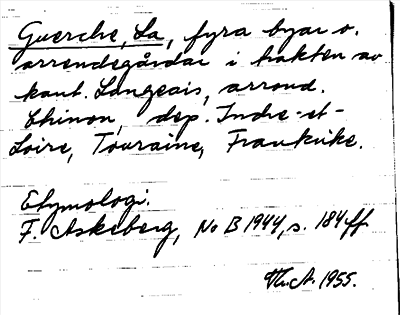 Guerche, La, fyra byar o.
arrendegårdar i trakten av
kant. Langeais, arrond.
Chinon, dep. Indre-et-
Loire, Touraine, Frankrike.
Etymologi.
F. Askeberg, No B 1944, s. 184 ff
Th. A. 1955.